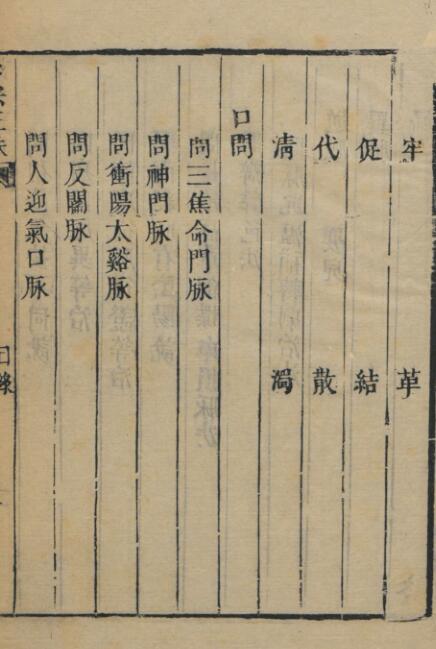 牢 革
促 結
代 散
清 濁
口問
問三焦命門脉
問神門脉
問衝陽太谿脉
問反關脉
問人迎氣口脉
目錄